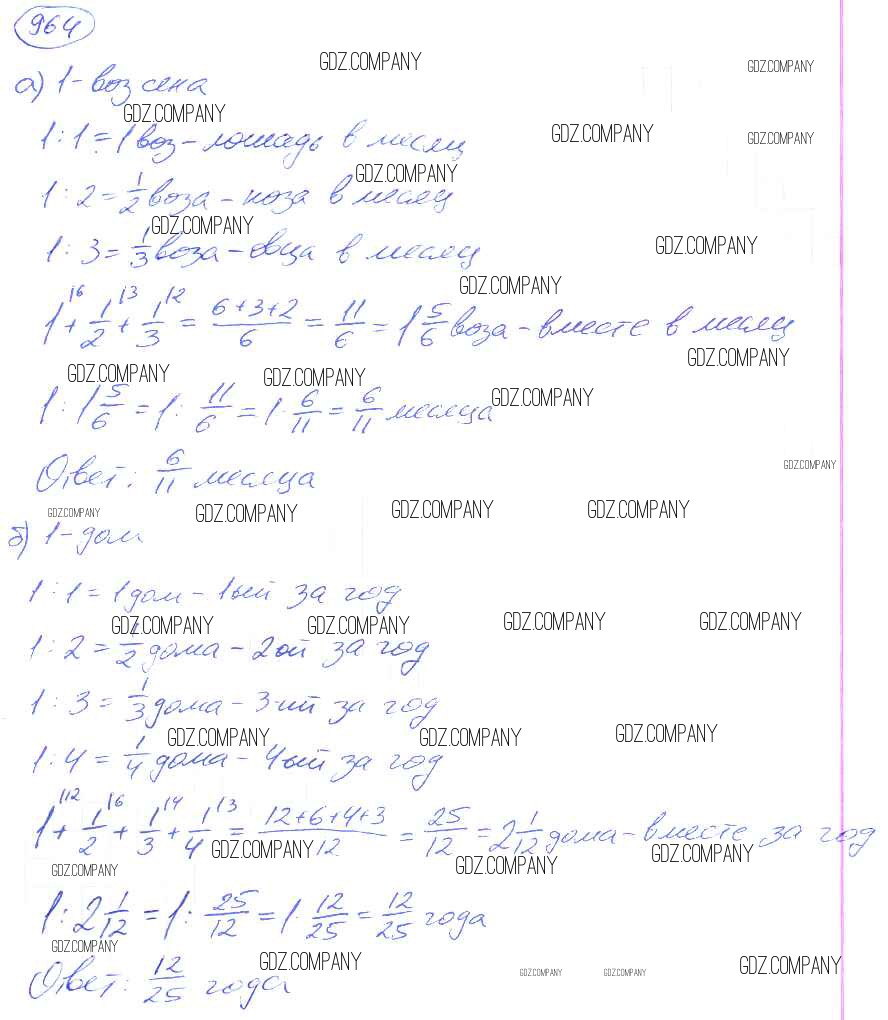 964
GDZ.COMPANY GDZ.COMPANY
а) 1 - воз сена
GDZ.COMPANY GDZ.COMPANY GDZ.COMPANY
1 : 1 = 1 воз - лошадь в месяц
GDZ.COMPANY
1 : 2 = 1/2 воза - коза в месяц
GDZ.COMPANY GDZ.COMPANY
1 : 3 = 1/3 воза - овца в месяц
GDZ.COMPANY
1\6 + 1/2\3 + 1/3\2 = (6+3+2)/6 = 11/6 = 1 5/6 воза - вместе в месяц
GDZ.COMPANY
GDZ.COMPANY GDZ.COMPANY GDZ.COMPANY
1 : 1 5/6 = 1 : 11/6 = 1 · 6/11 = 6/11 месяца
Ответ: 6/11 месяца
GDZ.COMPANY
GDZ.COMPANY GDZ.COMPANY GDZ.COMPANY GDZ.COMPANY
б) 1 - дом
1 : 1 = 1 дом - 1ый за год
GDZ.COMPANY GDZ.COMPANY GDZ.COMPANY GDZ.COMPANY
1 : 2 = 1/2 дома - 2ой за год
1 : 3 = 1/3 дома - 3-ий за год
GDZ.COMPANY GDZ.COMPANY GDZ.COMPANY
1 : 4 = 1/4 дома - 4ый за год
1\12 + 1/2\6 + 1/3\4 + 1/4\3 = (12+6+4+3)/12 = 25/12 = 2 1/12 дома - вместе за год
GDZ.COMPANY GDZ.COMPANY
GDZ.COMPANY GDZ.COMPANY
1 : 2 1/12 = 1 : 25/12 = 1 · 12/25 = 12/25 года
GDZ.COMPANY
Ответ: 12/25 года
GDZ.COMPANY GDZ.COMPANY GDZ.COMPANY GDZ.COMPANY